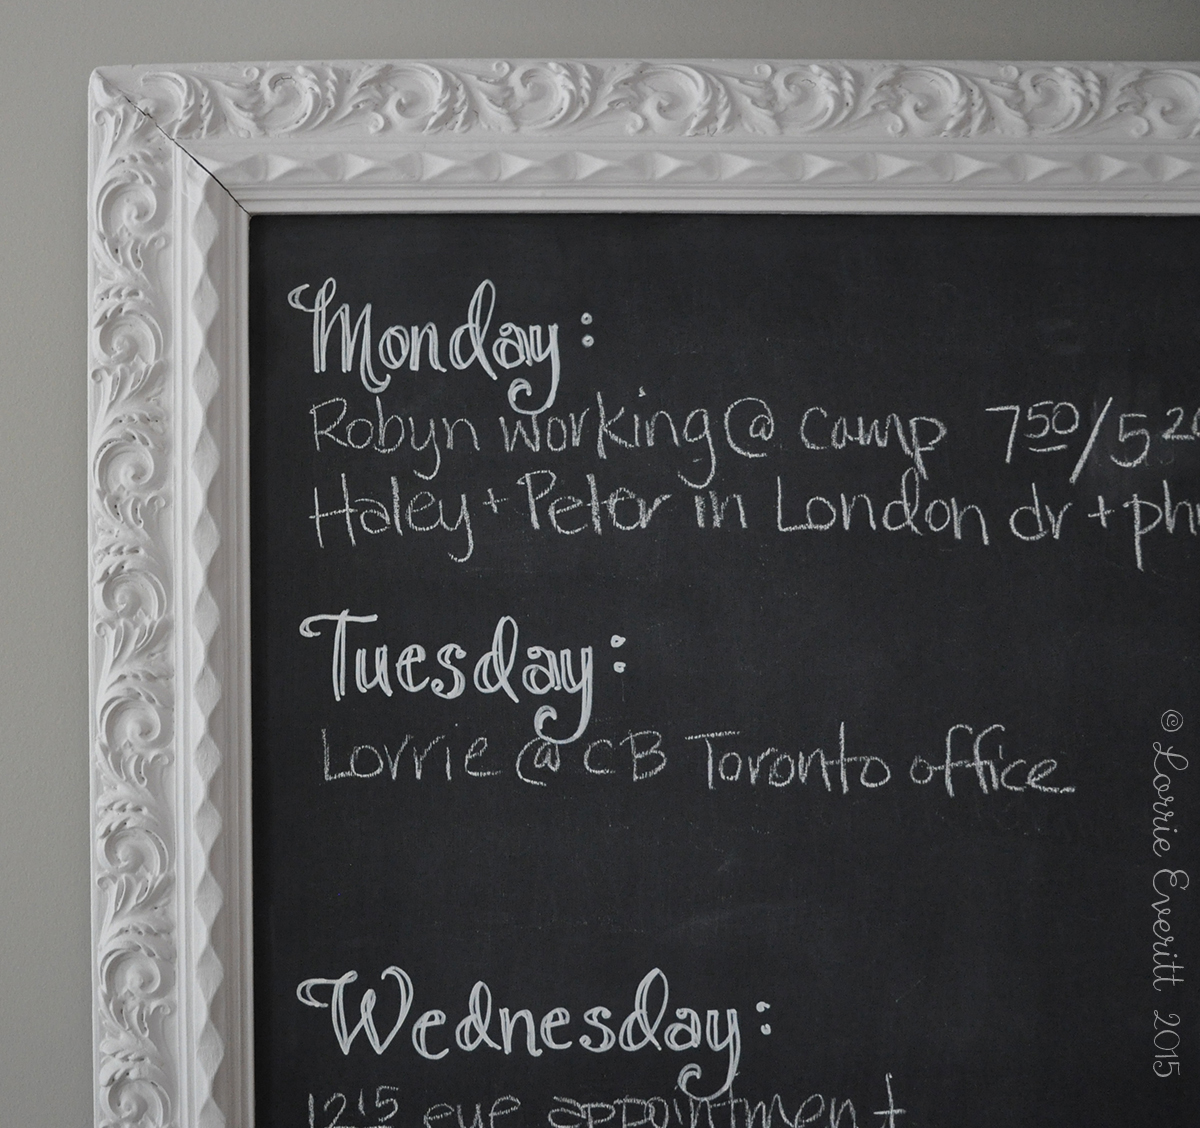 Monday:
Robyn working @ camp 7 50/5 20
Haley + Peter in London dr + ph
Tuesday:
Lorrie @ CB Toronto office
Wednesday:
12 15 eye appointment
© Lorrie Everitt 2015